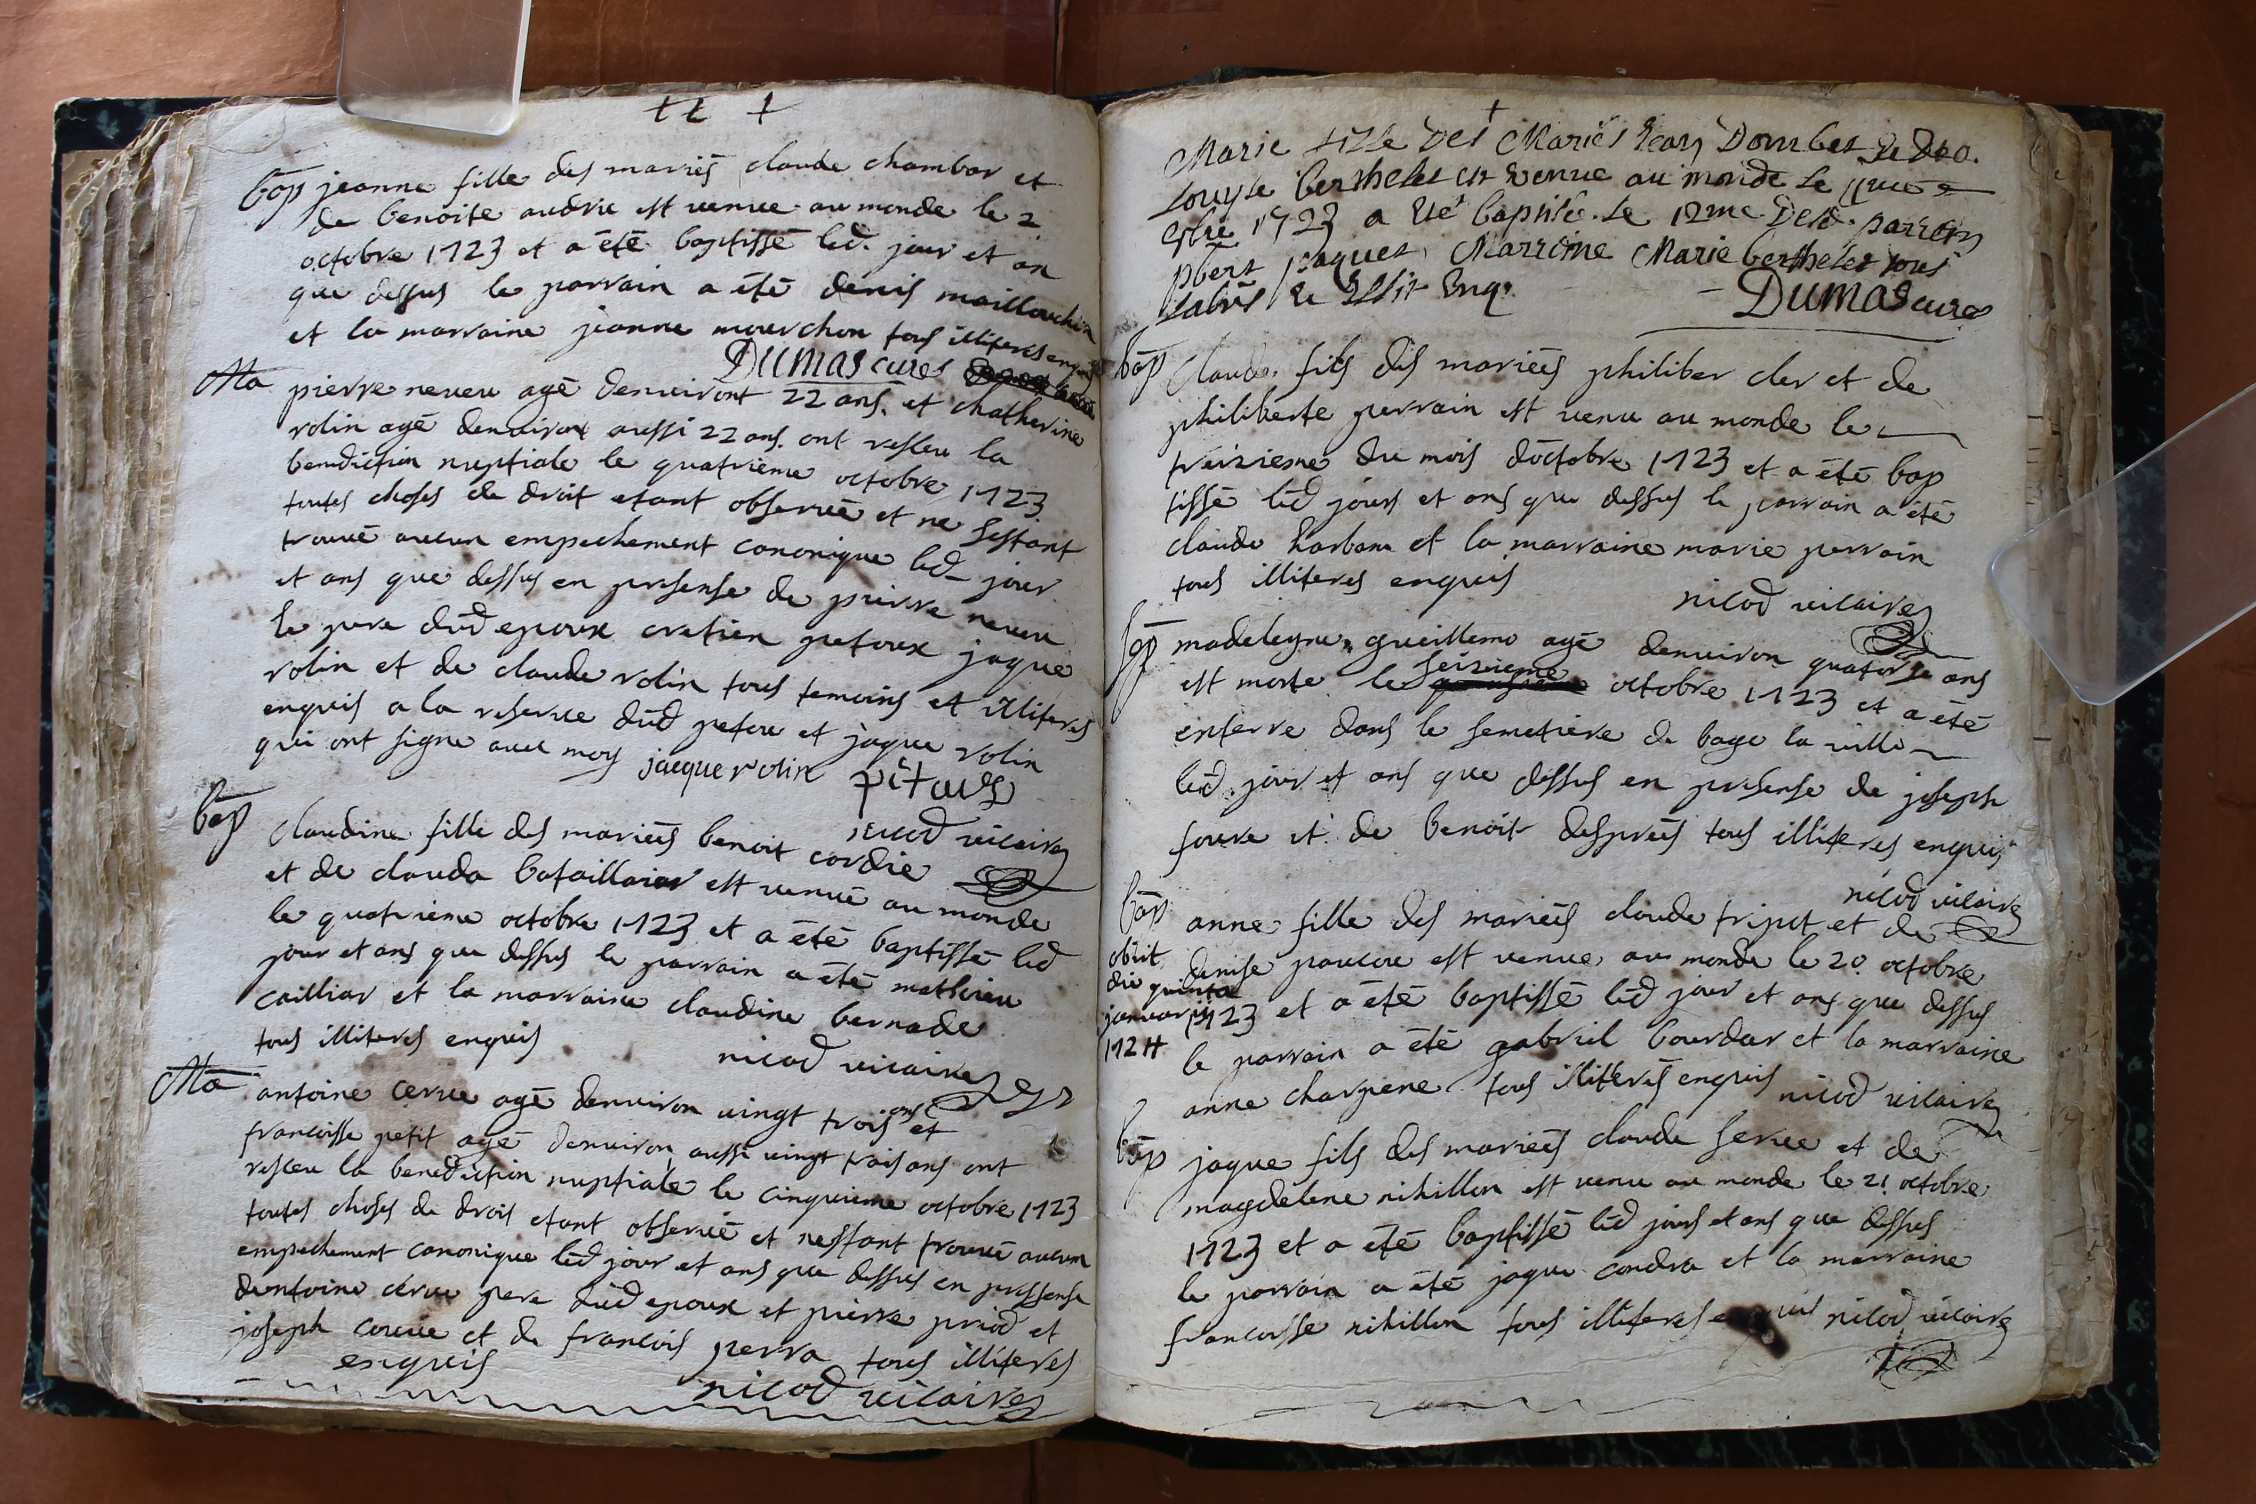 bap jeanne fille des mariés claude chambar et
de benoite audrie est venue au monde le 2
octobre 1723 et a été baptissé led. jour et an
que dessus le parrain a été denis maillouchon
et la marraine jeanne mourchon tous illiterés enquis
Dumas curé
Ma pierre neveu agé denviront 22 ans. et chatherine
rolin agé denviron aussi 22 ans. ont resseu la
benediction nuptiale le quatrieme octobre 1723
toutes choses de droit etant observeé et ne sestant
trouvé aucun empechement canonique led jour
et ans que dessus en presense de pierre neveu
le pere dud epoux cretien petoux jaque
rolin et de claude rolin tous temoins et illiterés
enquis a la reserve dud petou et jaque rolin
qui ont signe avec moy jacque rolin
nicod vicaire
bap claudine fille des marieés benoit cordie
et de clauda bataillar est venue au monde
le quatrieme octobre 1723 et a été baptissé led
jour et ans que dessus le parrain a été mathieu
cailliar et la marraine claudine bernade
tous illiterés enquis nicod vicaire
Ma antoine cerve agé denviron vingt trois ans et
francoisse petit agé denviron aussi vingt trois ans ont
resseu la benediction nuptiale le cinquieme octobre 1723
toutes choses de droit etant observeé et nestant trouvé aucun
empechement canonique led jour et ans que dessus en pressense
dantoine cerve pere dud epoux et pierre priod et
joseph coruie et de francois perra tous illiterés
enquis
nicod vicaire
Marie fille des Mariés Jean Dombet et de
Louyse berthelet est venue au monde le
1723 a été baptisée le 12me parrein
jaquet Marreine Marie berthelet tous
enq.
Dumas curé
bap Claude fils des marieés philiber cler et de
philiberte perrain est venu au monde le
treiziesme du mois doctobre 1723 et a été bap
tissé led jours et ans que dessus le parrain a été
claude barban et la marraine marie perrain
tous illiterés enquis
nicod vicaire
madeleyne guillemo agé denviron quatorse ans
est morte le seiziemme octobre 1723 et a été
enterre dans le semetiere de bage la ville
led jour et ans que dessus en presense de joseph
foure et de benoit despreés tous illiterés enquis
nicod vicaire
bap anne fille des marieés claude tripot et de
denise paucou est venue au monde le 20 octobre
1723 et a été baptissé led jour et ans que dessus
le parrain a été gabriel bourdar et la marraine
anne charpene tous illiterés enquis nicod vicaire
obiit
die quinta
januarii
1724
bap jaque fils des marieés claude serve et de
magdelene nihillon est venu au monde le 21 octobre
1723 et a été baptissé led jours et ans que dessus
le parrain a été jaque condra et la marraine
francoisse nihillon tous illiterés enquis nicod vicaire